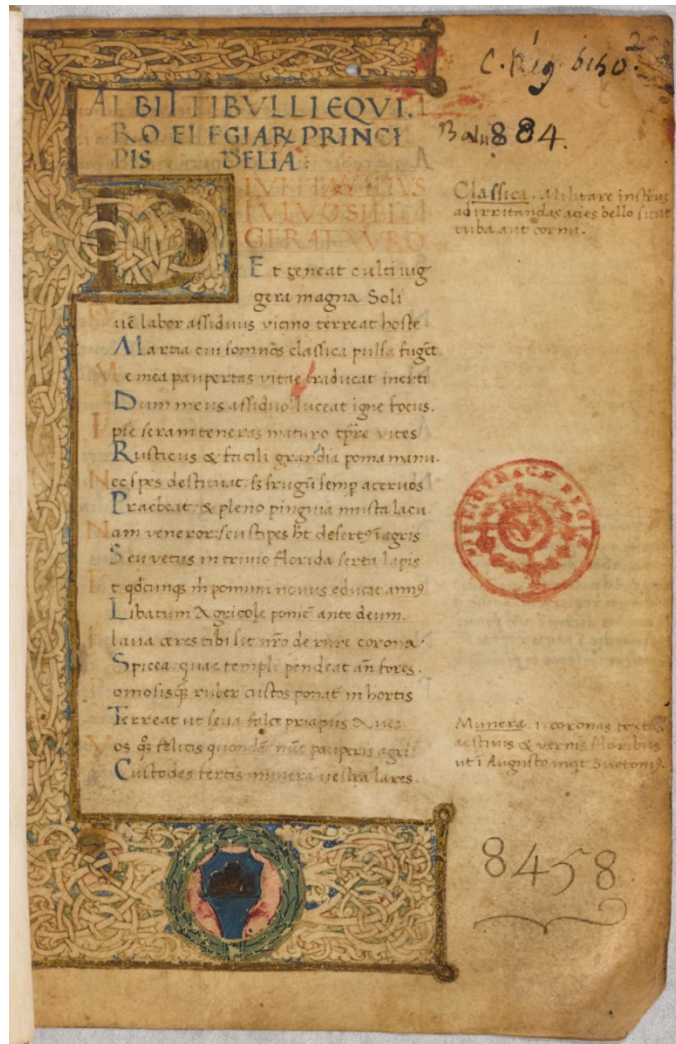 C. Reg. 6150
2.
Balu 884.
ALBII TIBVLLI EQVI.
RO ELEGIAR PRINCI
PIS DELIA:
DIVITIAS ALIVS
FVLVO SIBI
GERAT AVRO
Et teneat culti iug
gera magna Soli
uē labor assiduus vicino terreat hoste
Martia cui somnos classica pulsa fugēt.
Me mea paupertas vitae traducat inerti
Dum meus assiduo luceat igne focus.
Ipse seram teneras maturo tp̄re vites
Rusticus & facili grandia poma manu.
Nec spes destituat: sʒ frugū semp acervos
Praebeat: & pleno pinguia musta lacu.
Nam veneror: seu stipes ht desertꝰ ī agris
Seu vetus in trivio florida serta lapis
Et qdcunqʒ m̄ pomum novus educat annꝰ
Libatum Agricole ponit̄ ante deum.
Flava ceres tibi sit nr̄o de rure corona
Spicea: quae templi pendeat an̄ fores.
Pomosisqʒ ruber custos ponat̄ in hortis
Terreat ut seua falce priapus Aues
Vos qʒ felicis quondā: nūc pauperis agri
Custodes fertis munera uestra lares.
Classica. Militare instrus
ad irritandas acies bello sicut
tuba aut cornu.
Munera. i. coronas textas
aestivis & vernis floribus
ut ī Augusto inqt Suetoniꝰ.
8458